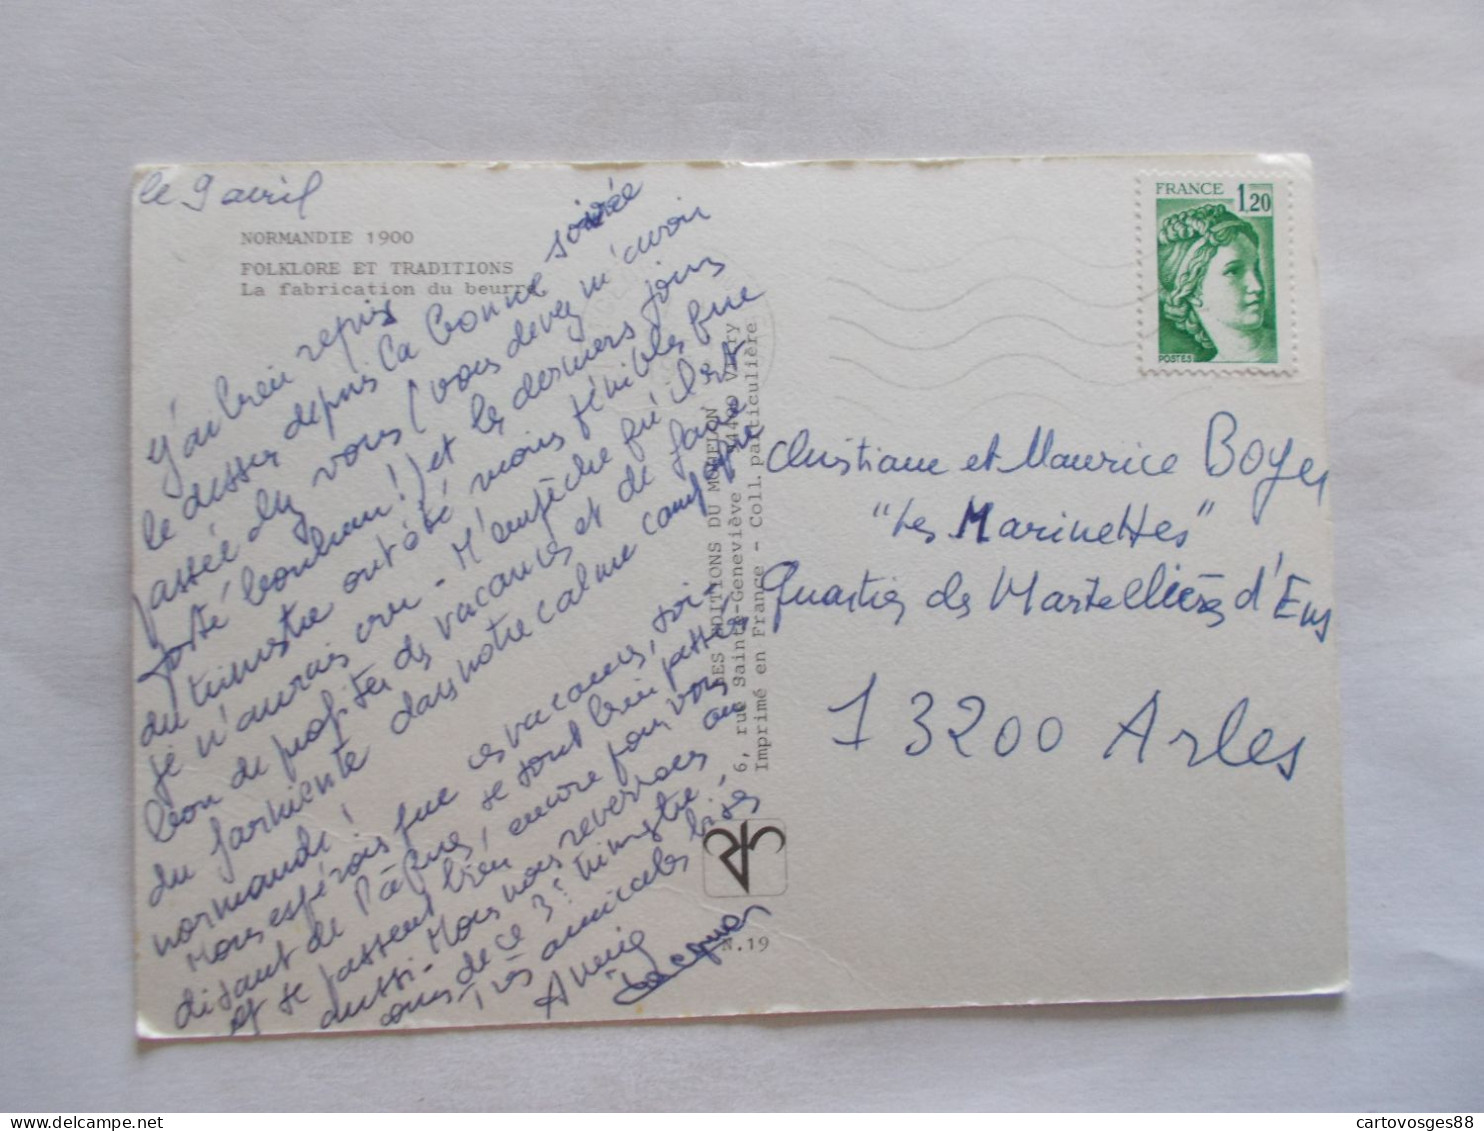 le 9 avril
NORMANDIE 1900
FOLKLORE ET TRADITIONS
La fabrication du beurre
J'ai bien repris
le dessus depuis la bonne soirée
passée chez vous (vous devez m'avoir
porté bonheur!) et les derniers jours
du trimestre ont été moins pénibles que
je n'aurais cru - N'empêche qu'il est
bon de profiter des vacances et de faire
du farniente dans notre calme campagne
normande!
Nous espérons que ces vacances, soi-
disant de Pâques, se sont bien passées
et se passent bien, encore pour vous
aussi - Nous nous reverrons au
cours de ce 3e trimestre -
Très amicales bises
Annie
Jacques
LES ÉDITIONS DU MOHELON
6, rue Sainte-Geneviève Vitry
Imprimé en France - Coll. particulière
N.19
FRANCE
1,20
POSTES
Christiane et Maurice Boyer
"Les Marinettes"
Quartier des Martellières d'Eus
13200 Arles
cartovosges88